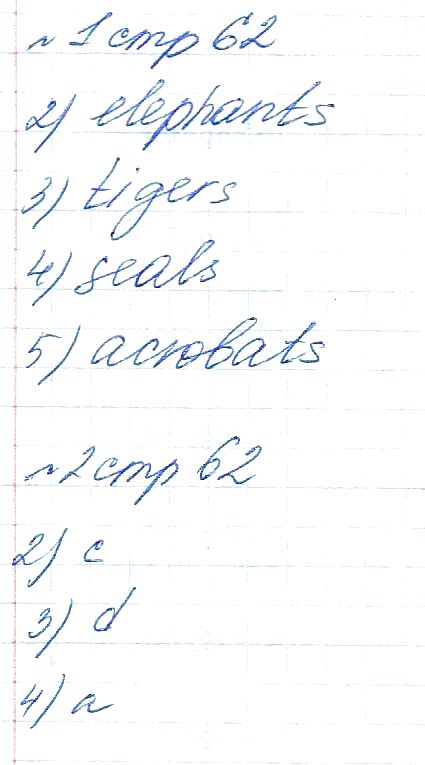 ~ 1 стр 62
2) elephants
3) tigers
4) seals
5) acrobats
~ 2 стр 62
2) c
3) d
4) a